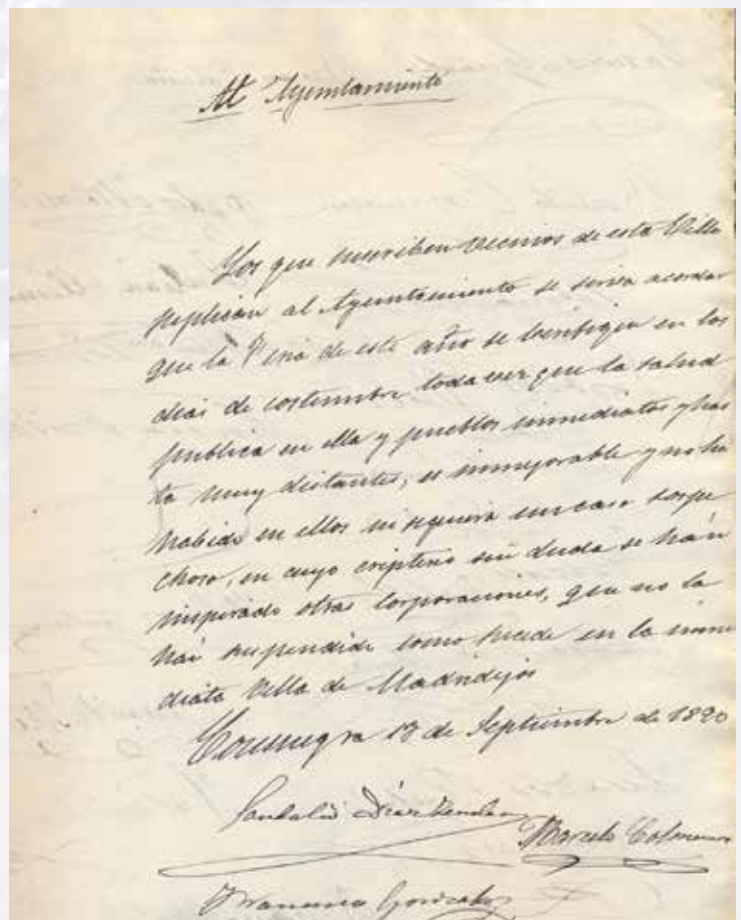 Al Ayuntamiento
Los que suscriben vecinos de esta Villa
suplican al Ayuntamiento se sirva acordar
que la Feria de este año se berifique en los
dias de costumbre toda vez que la salud
publica en ella y pueblos inmediatos y has
ta muy distantes, es inmejorable y no ha
habido en ellos ni siquiera un caso sospe
choso, en cuyo criterio sin duda se han
inspirado otras Corporaciones, que no la
han suspendido como sucede en la inme
diata Villa de Madridejos
Consuegra 13 de Septiembre de 1890
Sandalio Diaz
Marcelo Colmenar
Francisco Gonzalez